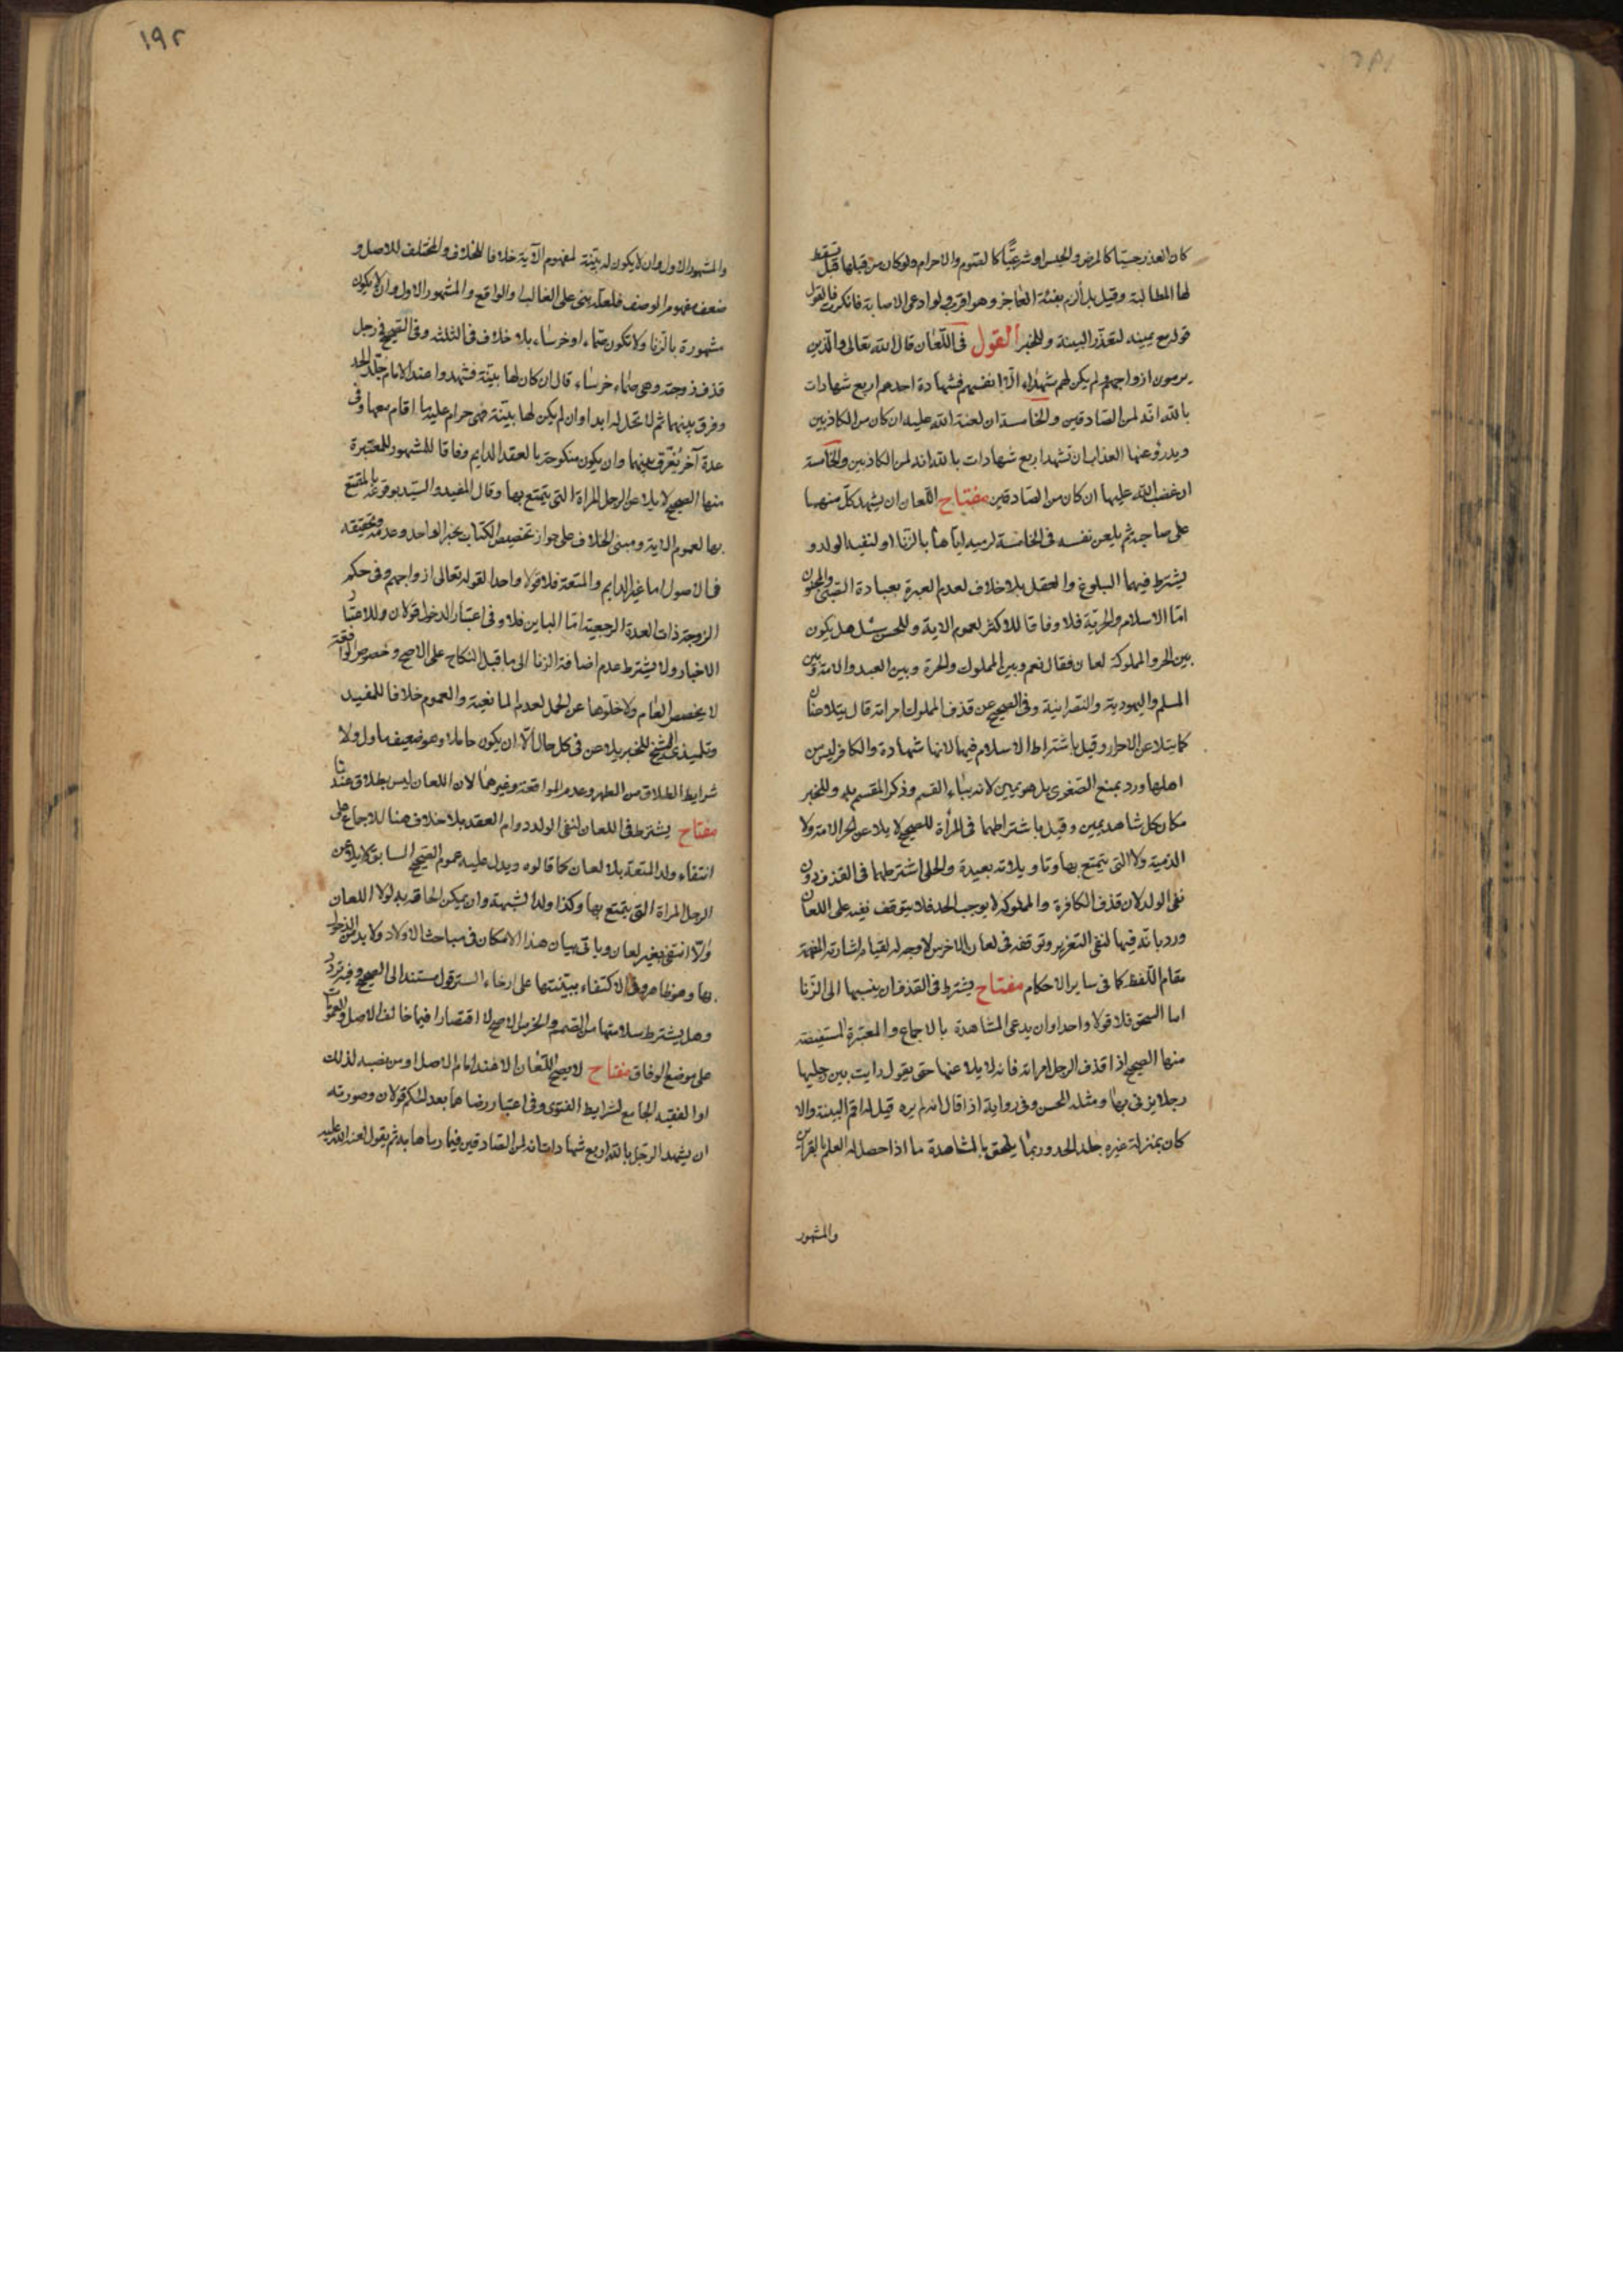 كان العذر حسيّا كالمرض والحبس او شرعيّا كالصوم والاحرام ولو كان من قبلها قيل تسقط
لها المطالبة وقيل بل ألزم بفئة العاجز وهو اقرب ولو ادعى الاصابة فانكرت فالقول
قوله مع يمينه لتعذّر البينة وللخبر القول في اللّعان قال الله تعالى والّذين
يرمون ازواجهم ولم يكن لهم شهداء الّا انفسهم فشهادة احدهم اربع شهادات
بالله انّه لمن الصادقين والخامسة ان لعنة الله عليه ان كان من الكاذبين
ويدرؤ عنها العذاب ان تشهد اربع شهادات بالله انه لمن الكاذبين والخامسة
ان غضب الله عليها ان كان من الصّادقين مفتاح اللّعان ان يشهد كلّ منهما
على صاحبه ثم يلعن نفسه في الخامسة لرميه اياها بالزنا او لنفيه الولد و
يشترط فيهما البلوغ والعقل بلا خلاف لعدم العبرة بعبادة الصّبي والمجنون
امّا الاسلام والحرّية فلا وفاقا للاكثر لعموم الاية وللحسن سئل هل يكون
بين الحر والمملوكة لعان فقال نعم وبين المملوك والحرة وبين العبد والامة وبين
المسلم واليهودية والنصرانية وفي الصحيح عن قذف المملوك امراته قال يتلاعنان
كما يتلاعن الاحرار وقيل باشتراط الاسلام فيهما لانها شهادة والكافر ليس من
اهلها ورد بمنع الصّغرى بل هو يمين لانه بباء القسم وذكر المقسم به وللخبر
مكان كل شاهد يمين وقيل باشتراطهما في المرأة للصحيح لا يلاعن الحر الامة ولا
الذمية ولا التي يتمتع بها وتاويلاته بعيدة والحلي اشترطهما في القذف دون
نفي الولد لان قذف الكافرة والمملوكة لا يوجب الحد فلا يتوقف نفيه على اللعان
ورد بانّه فيهما لنفي التعزير وتوقفه في لعان الاخرس لا وجه له لقيام اشارته المفهمة
مقام اللّفظ كما في ساير الاحكام مفتاح يشترط في القذف ان ينسبها الى الزّنا
اما السحق فلا قولا واحدا وان يدعى المشاهدة بالاجماع والمعتبرة المستفيضة
منها الصحيح اذا قذف الرجل امراته فانه لا يلاعنها حتى يقول رايت بين رجليها
رجلا يزنى بها ومثله الحسن وفي رواية اذا قال انه لم يره قيل له اقم البينة والا
كان بمنزلة غيره جلد الحد وربما يلحق بالمشاهدة ما اذا حصل له العلم بالقراين
والمشهور
١٩٢
والمشهور الاول وان لا يكون له بيّنة لمفهوم الآية خلافا للخلاف والمختلف للاصل و
ضعف مفهوم الوصف فلعلّه بنى على الغالب او الواقع والمشهور الاول وان لا يكون
مشهورة بالزنا ولا تكون صمّاء او خرساء بلا خلاف في الثلثة وفي الصّحيح في رجل
قذف زوجته وهي صمّاء خرساء قال ان كان لها بيّنة فشهدوا عند الامام جلّد الحد
وفرق بينهما ثم لا تحل له ابدا وان لم يكن لها بيّنة فهى حرام عليه ما اقام معها وفي
عدة آخر يفرّق بينهما وان يكون منكوحة بالعقد الدايم وفاقا للمشهور للمعتبرة
منها الصحيح لا يلاعن الرجل المراة التي يتمتع بها وقال المفيد والسّيّد بوقوعه بالمتمتع
بها لعموم الاية ومبنى الخلاف على جواز تخصيص الكتاب بخبر الواحد وعدمه وتحقيقه
في الاصول اما غير الدايم والمتعة فلا قولا واحدا لقوله تعالى ازواجهم وفي حكم
الزوجة ذات العدة الرجعية امّا الباين فلا وفي اعتبار الدخول قولان وللاعتبار
الاخبار ولا يشترط عدم اضافة الزنا الى ما قبل النكاح على الاصح وخصوص الواقعة
لا يخصص العام ولا خلوّها عن الحمل لعدم المانعية والعموم خلافا للمفيد
وتلميذى الشيخ للخبر يلاعن في كل حال الّا ان يكون حاملا وهو ضعيف ماول ولا
شرايط الطلاق من الطهر وعدم المواقعة وغيرهما لان اللعان ليس بطلاق عندنا
مفتاح يشترط في اللعان لنفي الولد دوام العقد بلا خلاف هنا للاجماع على
انتفاء ولد المتعة بلا لعان كما قالوه ويدل عليه عموم الصّحيح السابق لا يلاعن
الرجل المراة التي يتمتع بها وكذا ولد الشبهة وان يمكن الحاقه به لولا اللعان
والّا انتفى بغير لعان وياتي بيان هذا الامكان في مباحث الاولاد ولا بد من الدخول
بها وهو ظاهر وفي الاكتفاء ببيّنتها على ارخاء الستر قول مستند الى الصحيح وفيه تردّد
وهل يشترط سلامتها من الصّمم والخرس الاصح لا اقتصارا فيما خالف الاصل والعمومات
على موضع الوفاق مفتاح لا يصح اللّعان الا عند امام الاصل او من نصبه لذلك
او الفقيه الجامع لشرايط الفتوى وفي اعتبار رضاهما بعد الحكم قولان وصورته
ان يشهد الرّجل بالله اربع شهادات انه لمن الصّادقين فيما رماها به ثم يقول لعنة الله عليه